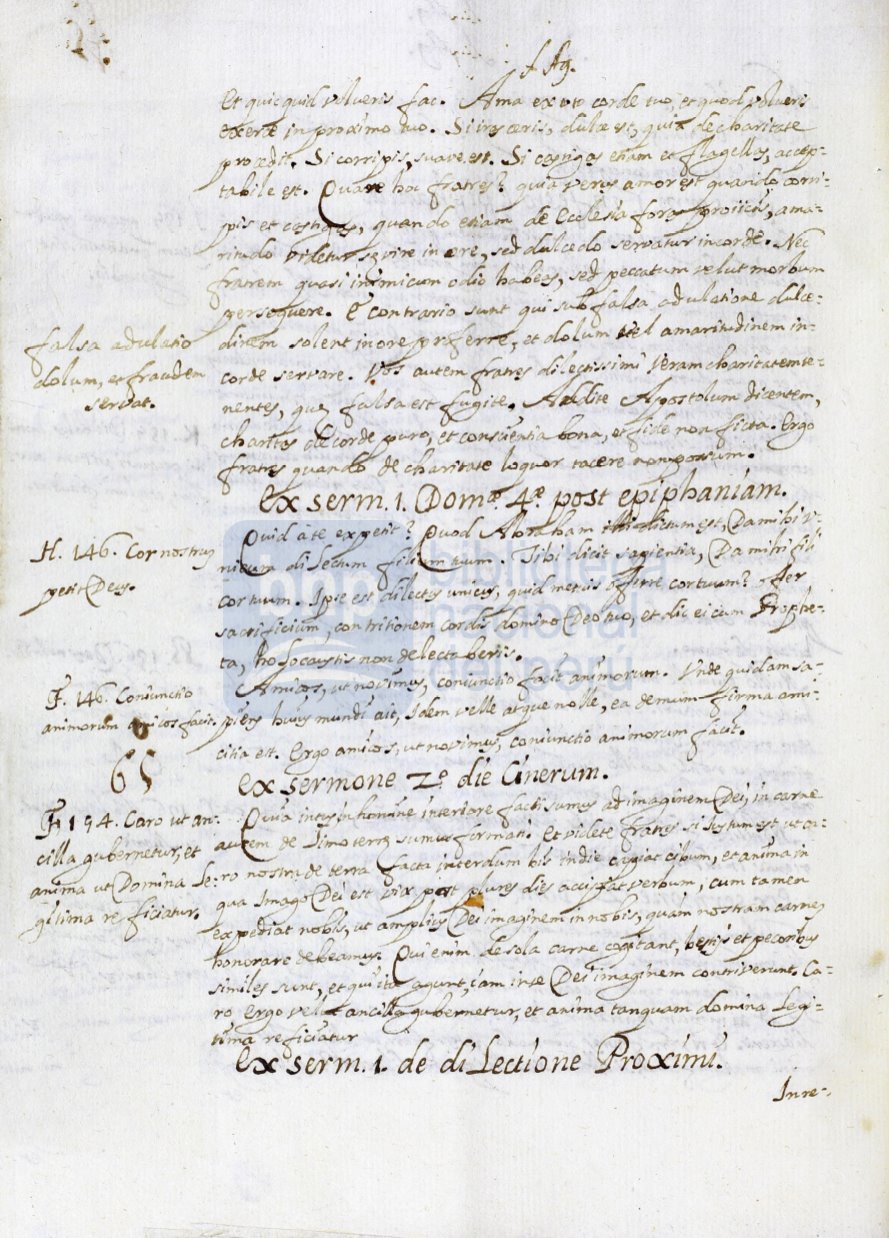 Et quicquid volueris fac. Ama ex toto corde tuo, et quod volueris
exerce in proximo tuo. Si irasceris, dulce est, quia de charitate
procedit. Si corripis, suave est. Si castigas etiam et flagelles, accep-
tabile est. Quare hoc fratres? quia verus amor est quando corri-
pis et castigas, quando etiam de Ecclesia foras proiicis, ama-
ritudo videtur in ore, sed dulcedo servatur in corde. Nec
fratrem quasi inimicum odio habeas, sed peccatum velut morbum
persequere. E contrario sunt qui sub falsa adulatione dulce-
dinem solent in ore proferre, et dolum vel amaritudinem in
falsa adulatio
dolum, et fraudem
servat.
corde servare. Vos autem fratres dilectissimi veram charitatem te-
nentes, quae falsa est fugite. Audite Apostolum dicentem,
charitas de corde puro, et conscientia bona, et fide non ficta. Ergo
fratres quando de charitate loquor tacere non possum.
Ex serm. 1. Domae. 4ae. post epiphaniam.
H. 146. Cor nostrum
petit Deus.
Quid à te expetit? Quod Abraham dictum est, Da mihi v-
nicum dilectum filium tuum. Tibi dicit sapientia, Da mihi fili
cor tuum. Ipse est dilectus unicus, quid metuis offerre cor tuum? offer
sacrificium, contritionem cordis domino Deo tuo, et dic ei cum Prophe-
ta, holocaustis non delectaberis.
F. 146. Coniunctio
animorum amicos facit.
Amicos, ut novimus, coniunctio facit animorum. Unde quidam sa-
piens huius mundi ait, Idem velle atque nolle, ea demum firma ami-
citia est. Ergo amicos, ut novimus, coniunctio animorum facit.
65
Ex sermone 2o. die Cinerum.
H 194. Caro ut an-
cilla gubernetur, et
anima ut Domina le-
gitima reficiatur.
Quia intus in homine interiore facti sumus ad imaginem Dei, in carne
autem de limo terrae sumus formati. Et videte fratres si iustum est ut ca-
ro nostra de terra facta interdum bis in die capiat cibum, et anima in
qua Imago Dei est vix post plures dies accipiat verbum, cum tamen
expediat nobis, ut amplius Dei imaginem in nobis, quam nostram carnem
honorare debeamus. Qui enim de sola carne cogitant, bestijs et pecoribus
similes sunt, et qui ita agunt, iam in se Dei imaginem contriverunt. Ca-
ro ergo velut ancilla gubernetur, et anima tanquam domina legi-
tima reficiatur
Ex serm. 1. de dilectione Proximi.
In re-
bnp
biblioteca
nacional
del perú